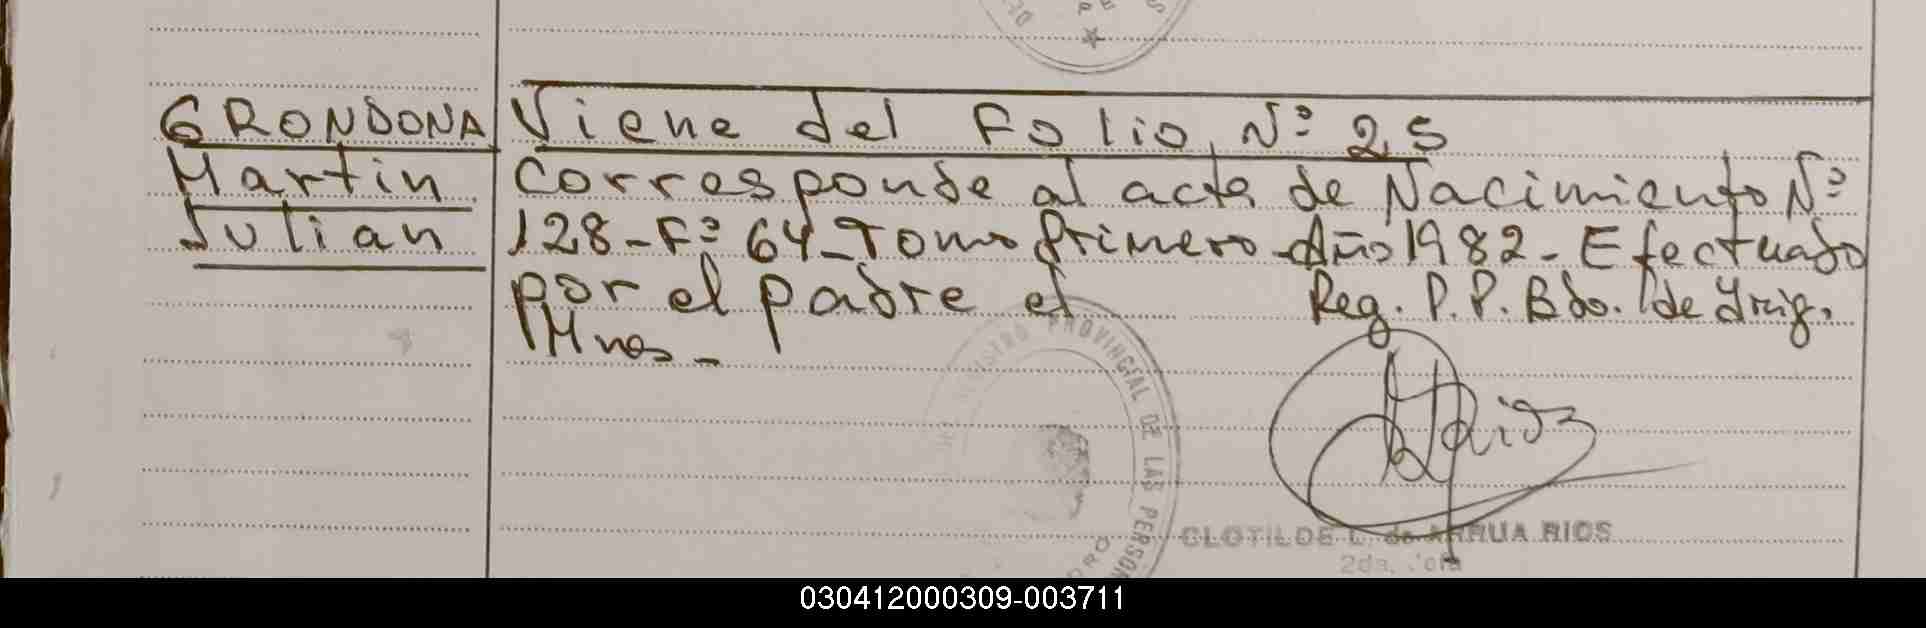 GRONDONA
Martin
Julian
Viene del Folio Nº 25
Corresponde al acta de Nacimiento Nº
128-Fº 64-Tomo Primero-Año 1982-Efectuado
por el padre el
Reg. P.P. Bdo. de Irig.
Mnes-
REGISTRO PROVINCIAL DE LAS PERSON
CLOTILDE L. de ARRUA RIOS
2da. Jefa
030412000309-003711